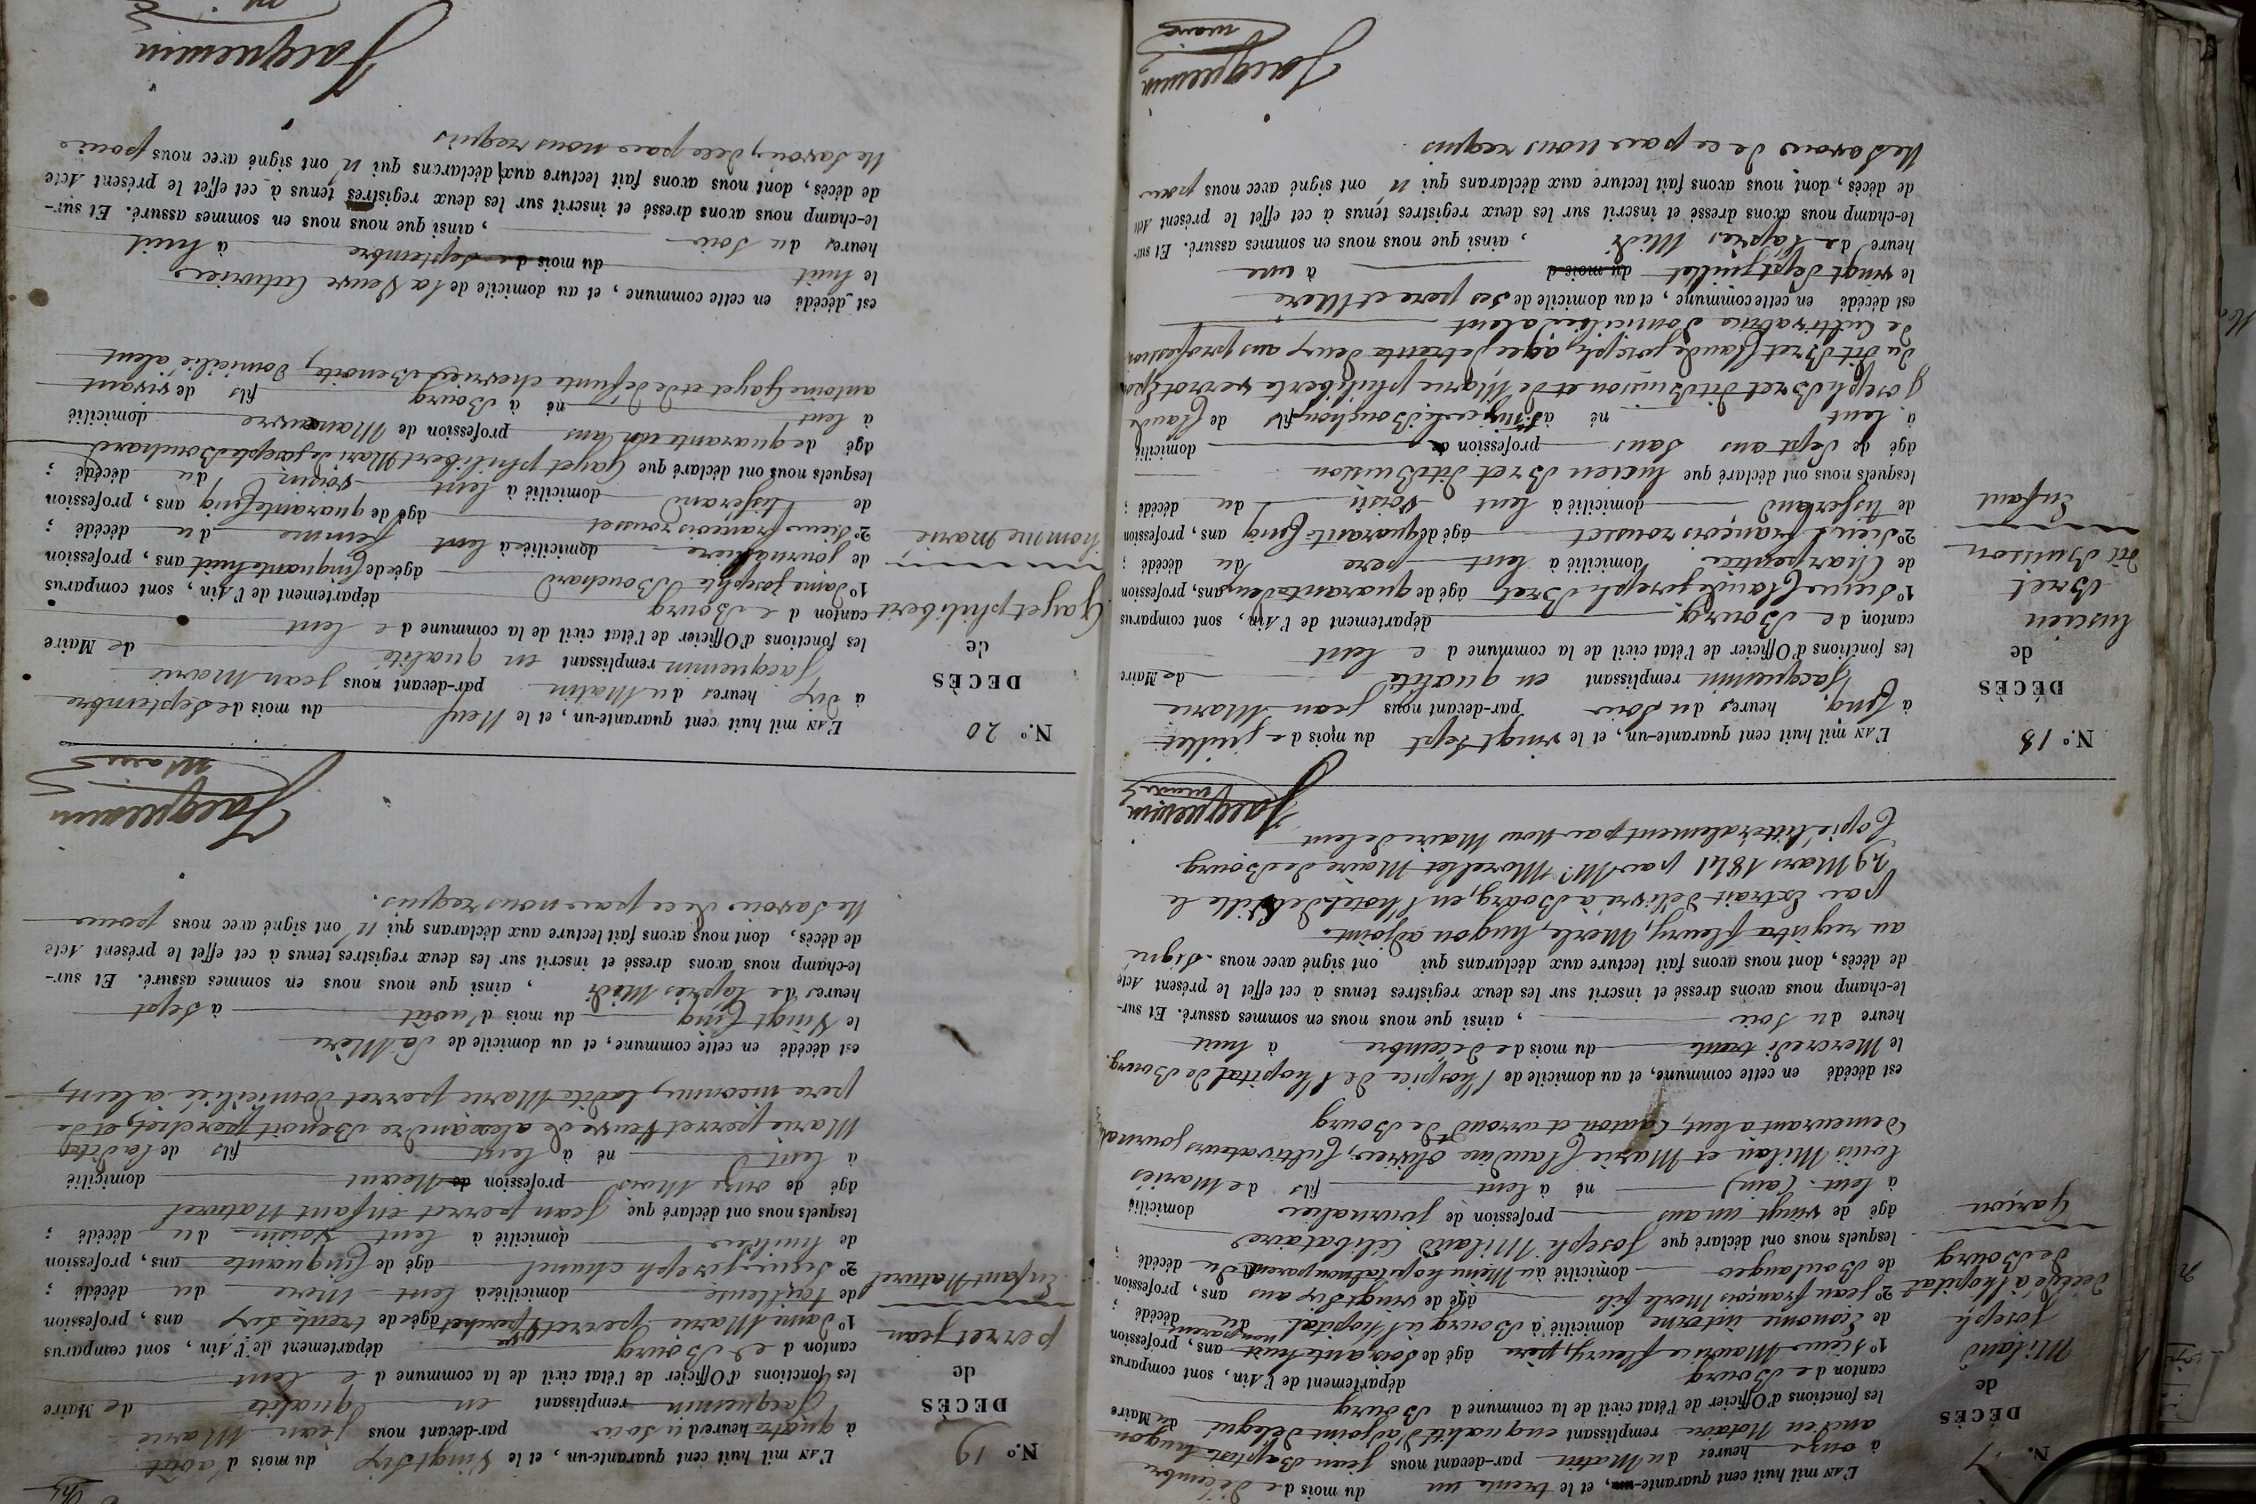 N.º 17
DÉCÈS
de
Miland
Joseph
décédé à l'hopital
de Bourg
Garçon
L'AN mil huit cent quarante-un, et le trente un du mois de décembre
à onze heures du Matin par-devant nous Jean Baptiste hugon
ancien Notaire remplissant en qualité d'adjoint délégué du Maire
les fonctions d'Officier de l'état civil de la commune de Bourg
canton de Bourg département de l'Ain, sont comparus
1º Sieur Maurice fleury, père âgé de soixante huit ans, profession
de Econome interne domicilié à Bourg à l'hopital non parent du décédé ;
2º Jean françois Merle fils âgé de vingt six ans, profession
de Boulanger domicilié au Même hopital non parent du décédé
lesquels nous ont déclaré que Joseph Miland Célibataire
âgé de vingt un ans profession de journalier domicilié
à lent (ain) né à lent fils de Mariés
Louis Milan et Marie Claudine olivier, Cultivateurs journal
demeurant a lent, Canton et arrond.t de Bourg
est décédé en cette commune, et au domicile de l'hospice de l'hopital de Bourg.
le Mercredi trente du mois de décembre à huit
heure du soir , ainsi que nous nous en sommes assuré. Et sur-
le-champ nous avons dressé et inscrit sur les deux registres tenus à cet effet le présent Acte
de décès, dont nous avons fait lecture aux déclarans qui ont signé avec nous. Signé
au registre fleury, Merle, hugon adjoint.
par Extrait délivré à Bourg, en l'hotel de Ville le
29 Mars 1841 par Mr. Morellet Maire de Bourg
Copié littéralement par nous Maire de lent
Jacquemin
maire
N.º 18
DÉCÈS
de
lucien
Bret
dit Buisson
Enfant
L'AN mil huit cent quarante-un, et le vingt sept du mois de juillet
à Cinq heures du Soir par-devant nous Jean Marie
Jacquemin remplissant en qualité de Maire
les fonctions d'Officier de l'état civil de la commune de lent
canton de Bourg département de l'Ain, sont comparus
1º Sieur Claude joseph Bret âgé de quarante deux ans, profession
de Charpentier domicilié à lent père du décédé ;
2º Sieur françois rousset âgé de quarante Cinq ans, profession
de tisserand domicilié à lent voisin du décédé ;
lesquels nous ont déclaré que lucien Bret dit Buisson
âgé de Sept ans Sans profession domicilié
à lent né à fils de Claude
joseph Bret dit Buisson et de Marie philiberte
du dit Bret Claude joseph, agée de trente deux ans profession
de Cultivatrice domiciliée a lent
est décédé en cette commune, et au domicile de Ses père et Mère
le vingt Sept juillet du mois d à une
heure de l'après Midi , ainsi que nous nous en sommes assuré. Et sur-
le-champ nous avons dressé et inscrit sur les deux registres tenus à cet effet le présent Acte
de décès, dont nous avons fait lecture aux déclarans qui n' ont signé avec nous pour
ne Savoir de ce par nous requis
Jacquemin
maire
N.º 19
DÉCÈS
de
perret jean
Enfant Naturel
L'AN mil huit cent quarante-un, et le Vingt Six du mois d'août
à quatre heure du soir par-devant nous Jean Marie
Jacquemin remplissant en qualité de Maire
les fonctions d'Officier de l'état civil de la commune de lent
canton de Bourg département de l'Ain, sont comparus
1º Dame Marie perret Ve perchet âgée de trente Six ans, profession
de domicilié à lent Mère du décédé ;
2º Sieur joseph chanel âgé de Cinquante ans, profession
de huilier domicilié à lent Voisin du décédé ;
lesquels nous ont déclaré que Jean perret enfant Naturel
âgé de onze Mois profession de Néant domicilié
à lent né à lent fils de la dite
Marie perret Veuve de alexandre Benoit perchet, et de
pere inconnu, ladite Marie perret domiciliée a lent,
est décédé en cette commune, et au domicile de Sa Mère
le Vingt Cinq du mois d'août à Sept
heures de l'après Midi , ainsi que nous nous en sommes assuré. Et sur-
le-champ nous avons dressé et inscrit sur les deux registres tenus à cet effet le présent Acte
de décès, dont nous avons fait lecture aux déclarans qui n' ont signé avec nous pour
ne Savoir de ce par nous requis.
Jacquemin
Maire
N.º 20
DÉCÈS
de
Gayet philibert
homme marié
L'AN mil huit cent quarante-un, et le Neuf du mois de Septembre
à dix heures du Matin par-devant nous Jean Marie
Jacquemin remplissant en qualité de Maire
les fonctions d'Officier de l'état civil de la commune de lent
canton de Bourg département de l'Ain, sont comparus
1º Dame Josephte Bouchard âgée de Cinquante huit ans, profession
de journalière domiciliée à lent femme du décédé ;
2º Sieur françois rousset âgé de quarante Cinq ans, profession
de tisserand domicilié à lent voisin du décédé ;
lesquels nous ont déclaré que Gayet philibert Mari de josephte Bouchard
âgé de quarante un ans profession de Manœuvre domicilié
à lent né à Bourg fils de vivant
antoine Gayet et de défunte chevrier Benoite, domicilié a lent
est décédé en cette commune, et au domicile de la Veuve
le huit du mois de Septembre à huit
heures du soir , ainsi que nous nous en sommes assuré. Et sur-
le-champ nous avons dressé et inscrit sur les deux registres tenus à cet effet le présent Acte
de décès, dont nous avons fait lecture aux déclarans qui n' ont signé avec nous pour
ne Savoir, de ce par nous requis
Jacquemin